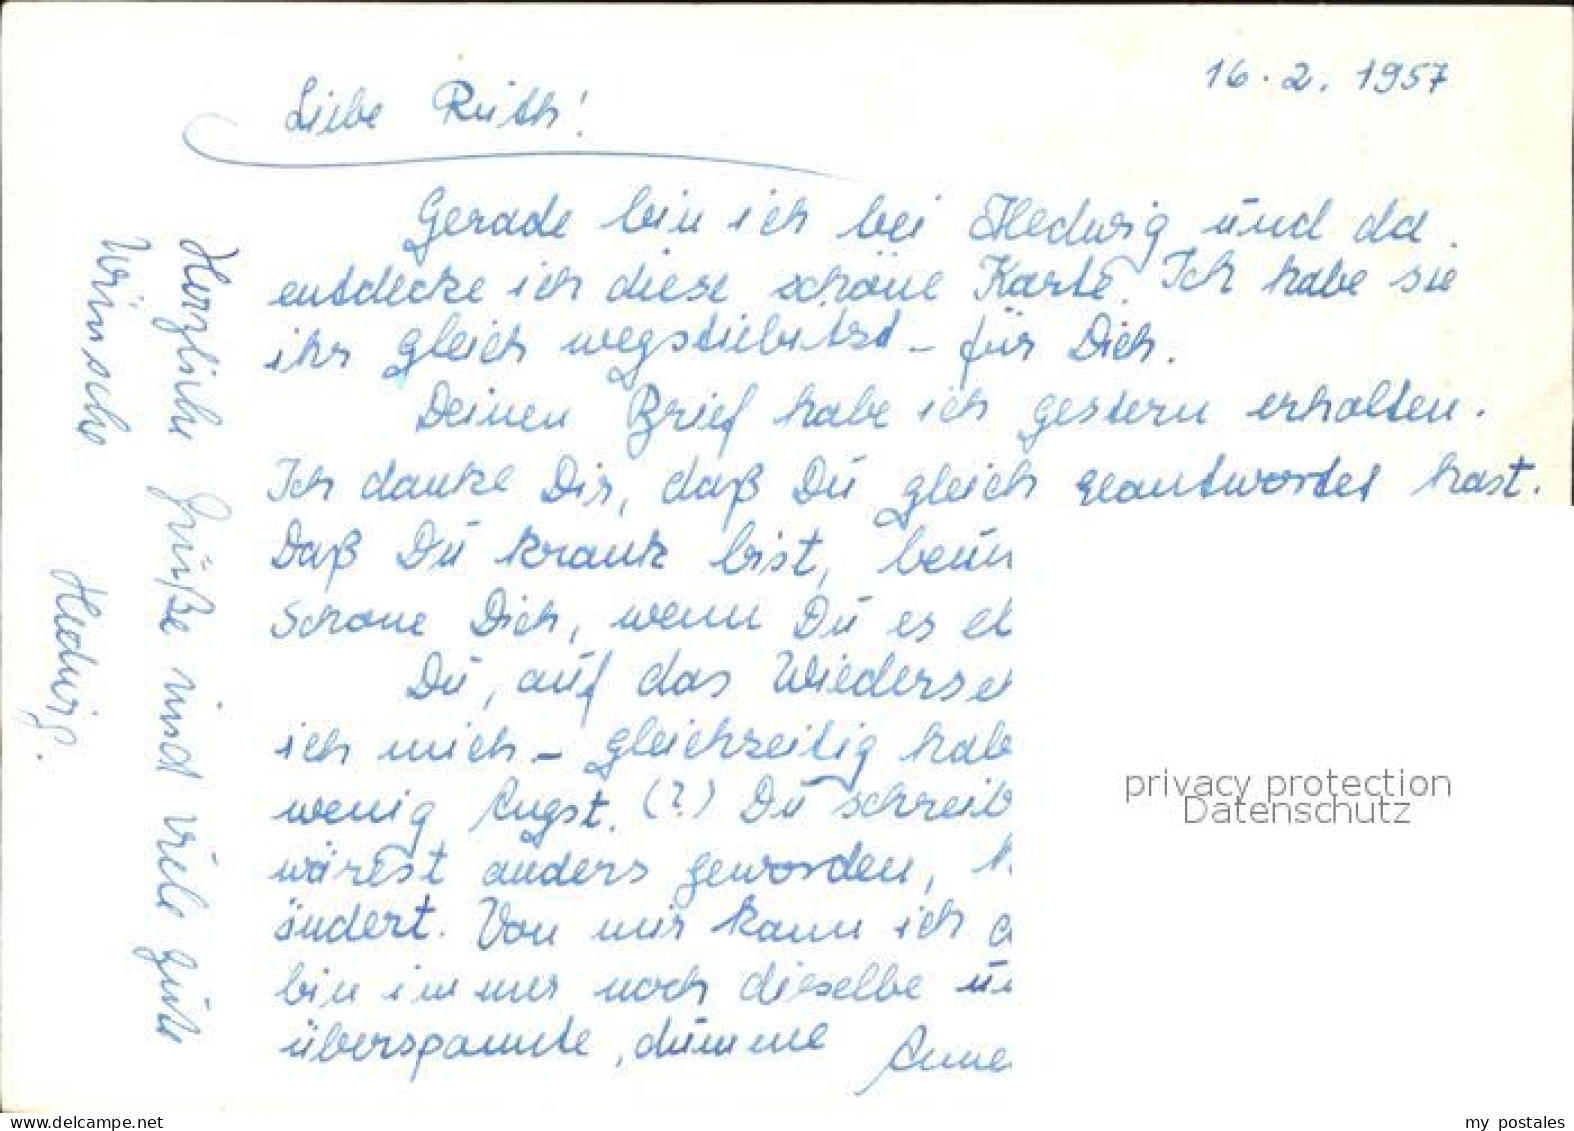 16.2.1957
Liebe Ruth!
Gerade bin ich bei Hedwig und da
entdecke ich diese schöne Karte. Ich habe sie
ihr gleich wegstiebitzt – für Dich.
Deinen Brief habe ich gestern erhalten.
Ich danke Dir, daß Du gleich geantwortet hast.
Daß Du krank bist, beun
Schone Dich, wenn Du es
Du, auf das Wiederseh
ich mich – gleichzeitig habe
wenig Angst. (?) Du schreib
wärest anders geworden,
ändert. Von mir kann ich
bin immer noch dieselbe
überspannte, dumme Anne
Herzliche Grüße und viele gute
Wünsche
Hedwig.
privacy protection
Datenschutz
my postales